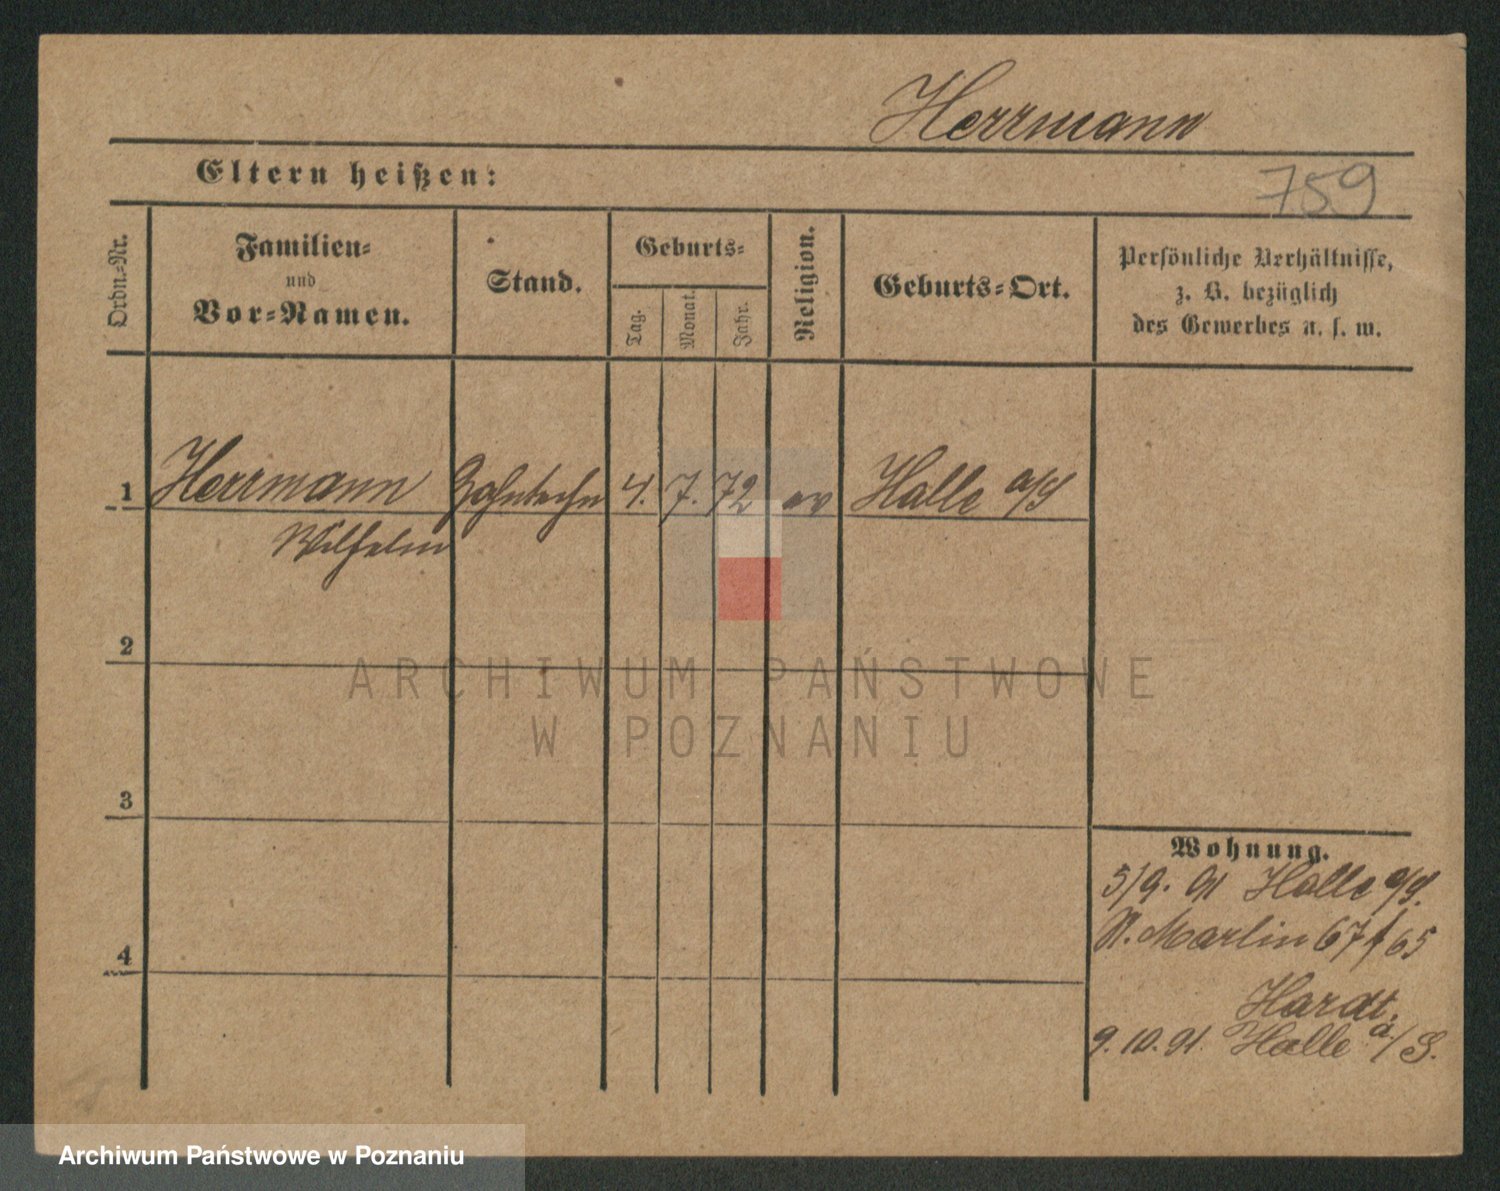 Herrmann
Eltern heißen:
759
Ordn.-Nr.
Familien-
und
Vor-Namen.
Stand.
Geburts-
Tag.
Monat.
Jahr.
Religion.
Geburts-Ort.
Persönliche Verhältnisse,
z. B. bezüglich
des Gewerbes u. s. w.
1 Herrmann Zahntechn 4. 7. 72 ev Halle a/S
Wilhelm
2
ARCHIWUM PAŃSTWOWE
W POZNANIU
3
Wohnung.
5/9. 91 Halle a/S.
St. Martin 67 / 65
4
Hardt.
9. 10. 91. Halle a/S.
Archiwum Państwowe w Poznaniu